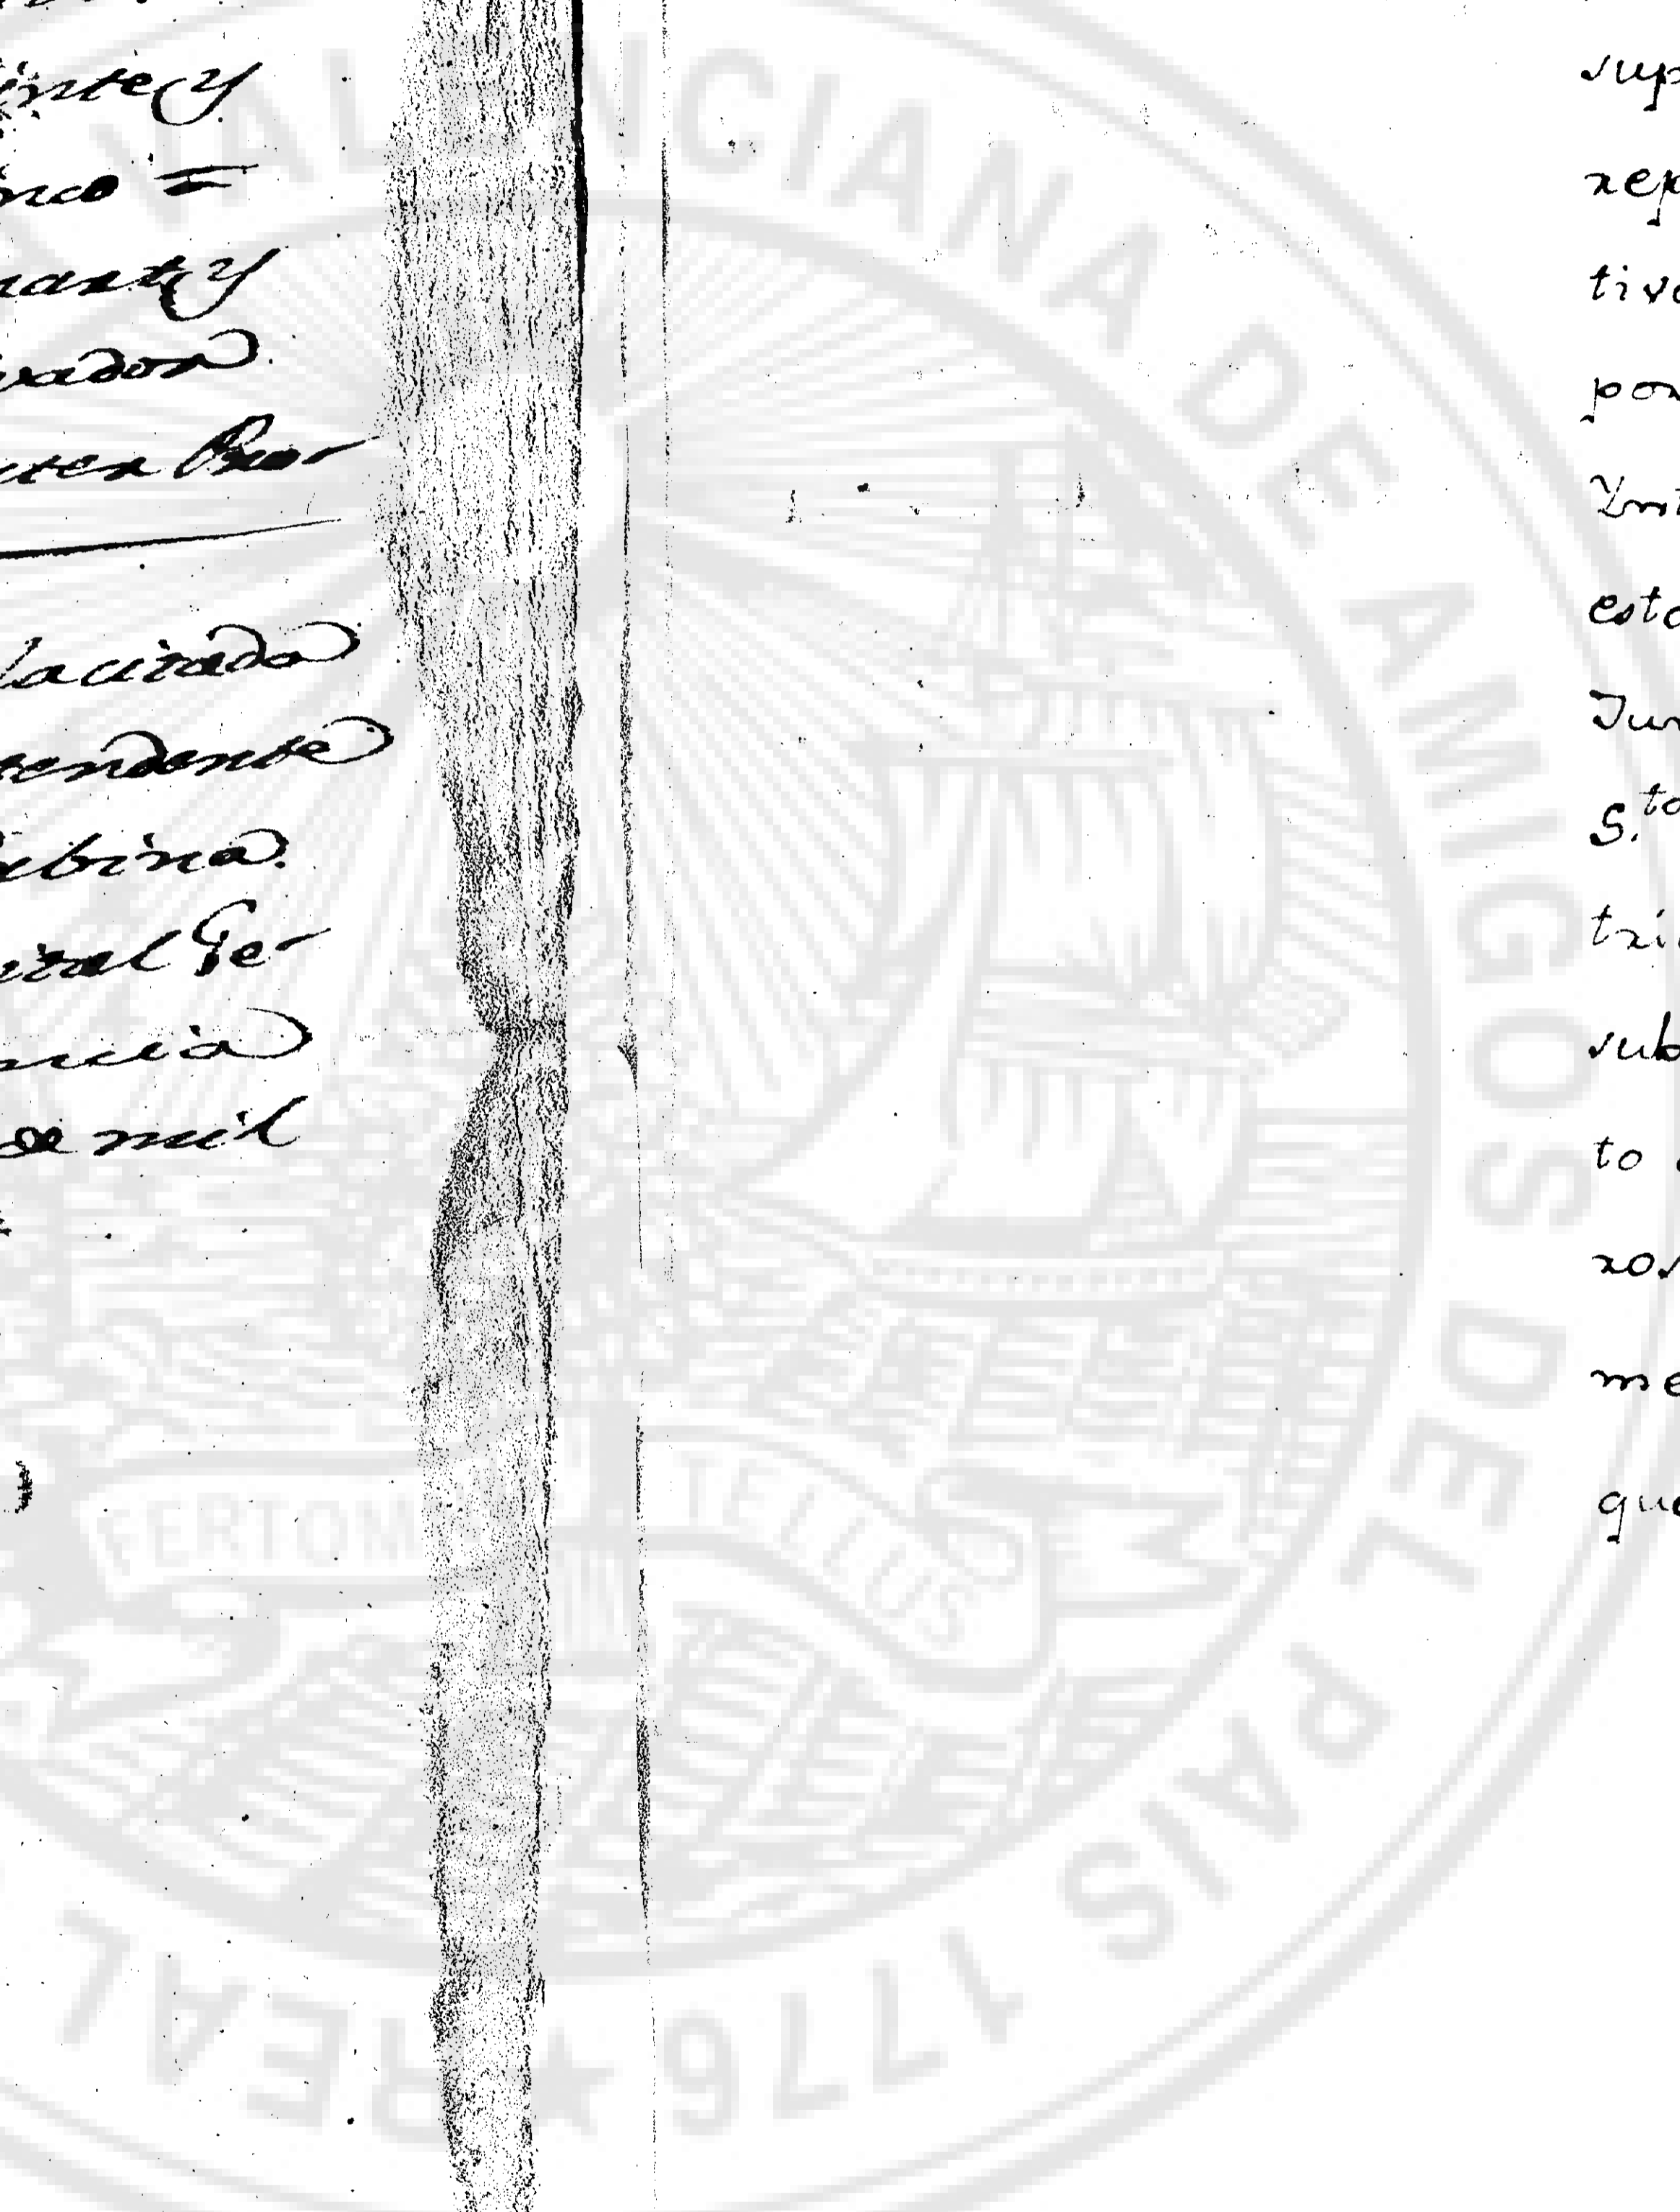 inte y
nco =
mart y
vador
uter Pro-
la citada
tendente
ubina.
ital Ge-
ncia
de mil
sup
rep
tiv
por
Ynt
esta
Jur
S.to
tri
sub
to
ros
me
que
VALENCIANA DE AMIGOS DEL PAIS 1776 ★ REAL
FERTONI TELLUS